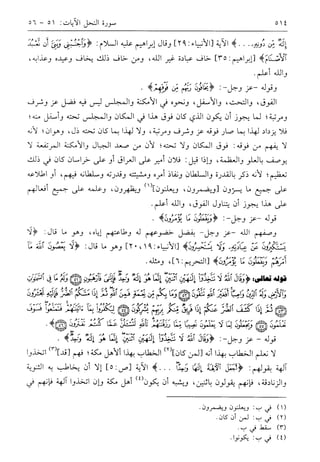 ٥١٤ سورة النحل الآيات: ٥١ - ٥٦
إِلَهٌ مِّن دُونِهِ... ﴾ الآية [الأنبياء: ٢٩] وقال إبراهيم عليه السلام: ﴿وَاجْنُبْنِي وَبَنِيَّ أَن نَّعْبُدَ
الْأَصْنَامَ﴾ [إبراهيم: ٣٥] خاف عبادة غير الله، ومن خاف ذلك يخاف وعيده وعذابه،
والله أعلم.
وقوله -عز وجل-: ﴿يَخَافُونَ رَبَّهُم مِّن فَوْقِهِمْ﴾.
الفوق، والتحت، والأسفل، ونحوه في الأمكنة والمجلس ليس فيه فضل عز وشرف
ومرتبة؛ لما يجوز أن يكون الذي كان فوق هذا في المكان والمجلس تحته وأسفل منه؛
فلا يزداد لهذا بما صار فوقه عز وشرف ومرتبة، ولا لهذا بما كان تحته ذل، وهوان؛ لأنه
لا يفهم من فوقه: فوق المكان ولا تحته؛ لأن من صعد الجبال والأمكنة المرتفعة لا
يوصف بالعلو والعظمة، وإذا قيل: فلان أمير على العراق أو على خراسان كان في ذلك
تعظيم؛ لأنه ذكر بالقدرة والسلطان ونفاذ أمره ومشيئته وقدرته وسلطانه فيهم، أو اطلاعه
على جميع ما يسرون [ويضمرون، ويعلنون](١) ويظهرون، وعلمه على جميع أفعالهم
على هذا يجوز أن يتناول الفوق، والله أعلم.
وقوله -عز وجل-: ﴿وَيَفْعَلُونَ مَا يُؤْمَرُونَ﴾.
وصفهم الله -عز وجل- بفضل خضوعهم له وطاعتهم إياه، وهو ما قال: ﴿لَا
يَسْتَكْبِرُونَ عَنْ عِبَادَتِهِ، وَلَا يَسْتَحْسِرُونَ﴾ [الأنبياء: ١٩، ٢٠] وهو ما قال: ﴿لَّا يَعْصُونَ اللَّهَ مَا
أَمَرَهُمْ وَيَفْعَلُونَ مَا يُؤْمَرُونَ﴾ [التحريم: ٦]، ومثله.
قوله تعالى: ﴿وَقَالَ اللَّهُ لَا تَتَّخِذُوا إِلَهَيْنِ اثْنَيْنِ إِنَّمَا هُوَ إِلَهٌ وَاحِدٌ فَإِيَّايَ فَارْهَبُونِ وَلَهُ مَا فِي
السَّمَاوَاتِ وَالْأَرْضِ وَلَهُ الدِّينُ وَاصِبًا أَفَغَيْرَ اللَّهِ تَتَّقُونَ وَمَا بِكُم مِّن نِّعْمَةٍ فَمِنَ اللَّهِ ثُمَّ إِذَا مَسَّكُمُ الضُّرُّ فَإِلَيْهِ تَجْأَرُونَ
ثُمَّ إِذَا كَشَفَ الضُّرَّ عَنكُمْ إِذَا فَرِيقٌ مِّنكُم بِرَبِّهِمْ يُشْرِكُونَ لِيَكْفُرُوا بِمَا آتَيْنَاهُمْ فَتَمَتَّعُوا فَسَوْفَ
تَعْلَمُونَ وَيَجْعَلُونَ لِمَا لَا يَعْلَمُونَ نَصِيبًا مِّمَّا رَزَقْنَاهُمْ تَاللَّهِ لَتُسْأَلُنَّ عَمَّا كُنتُمْ تَفْتَرُونَ﴾.
قوله - عز وجل-: ﴿وَقَالَ اللَّهُ لَا تَتَّخِذُوا إِلَهَيْنِ اثْنَيْنِ إِنَّمَا هُوَ إِلَهٌ وَاحِدٌ﴾.
لا نعلم الخطاب بهذا أنه [لمن كان](٢) الخطاب بهذا لأهل مكة، فهم [قد](٣) اتخذوا
آلهة بقولهم: ﴿أَجَعَلَ الْآلِهَةَ إِلَهًا وَاحِدًا...﴾ الآية [ص: ٥] إلا أن يخاطب به الثنوية
والزنادقة، فإنهم يقولون باثنين، ويشبه أن يكون(٤) أهل مكة وإن اتخذوا آلهة فإنهم في
(١) في ب: ويعلنون ويضمرون.
(٢) في ب: لمن أن كان.
(٣) سقط في ب.
(٤) في ب: يكونوا.